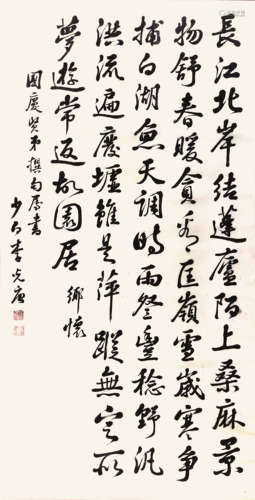 長江北岸結蓬廬陌上桑麻景
物舒春暖貪看匡嶺雪歲寒爭
捕白湖魚天調時雨登豐稔野汎
洪流遍廢墟雖是萍蹤無定所
夢遊常返故園居 鄉懷
國慶賢弟撰句屬書
李光